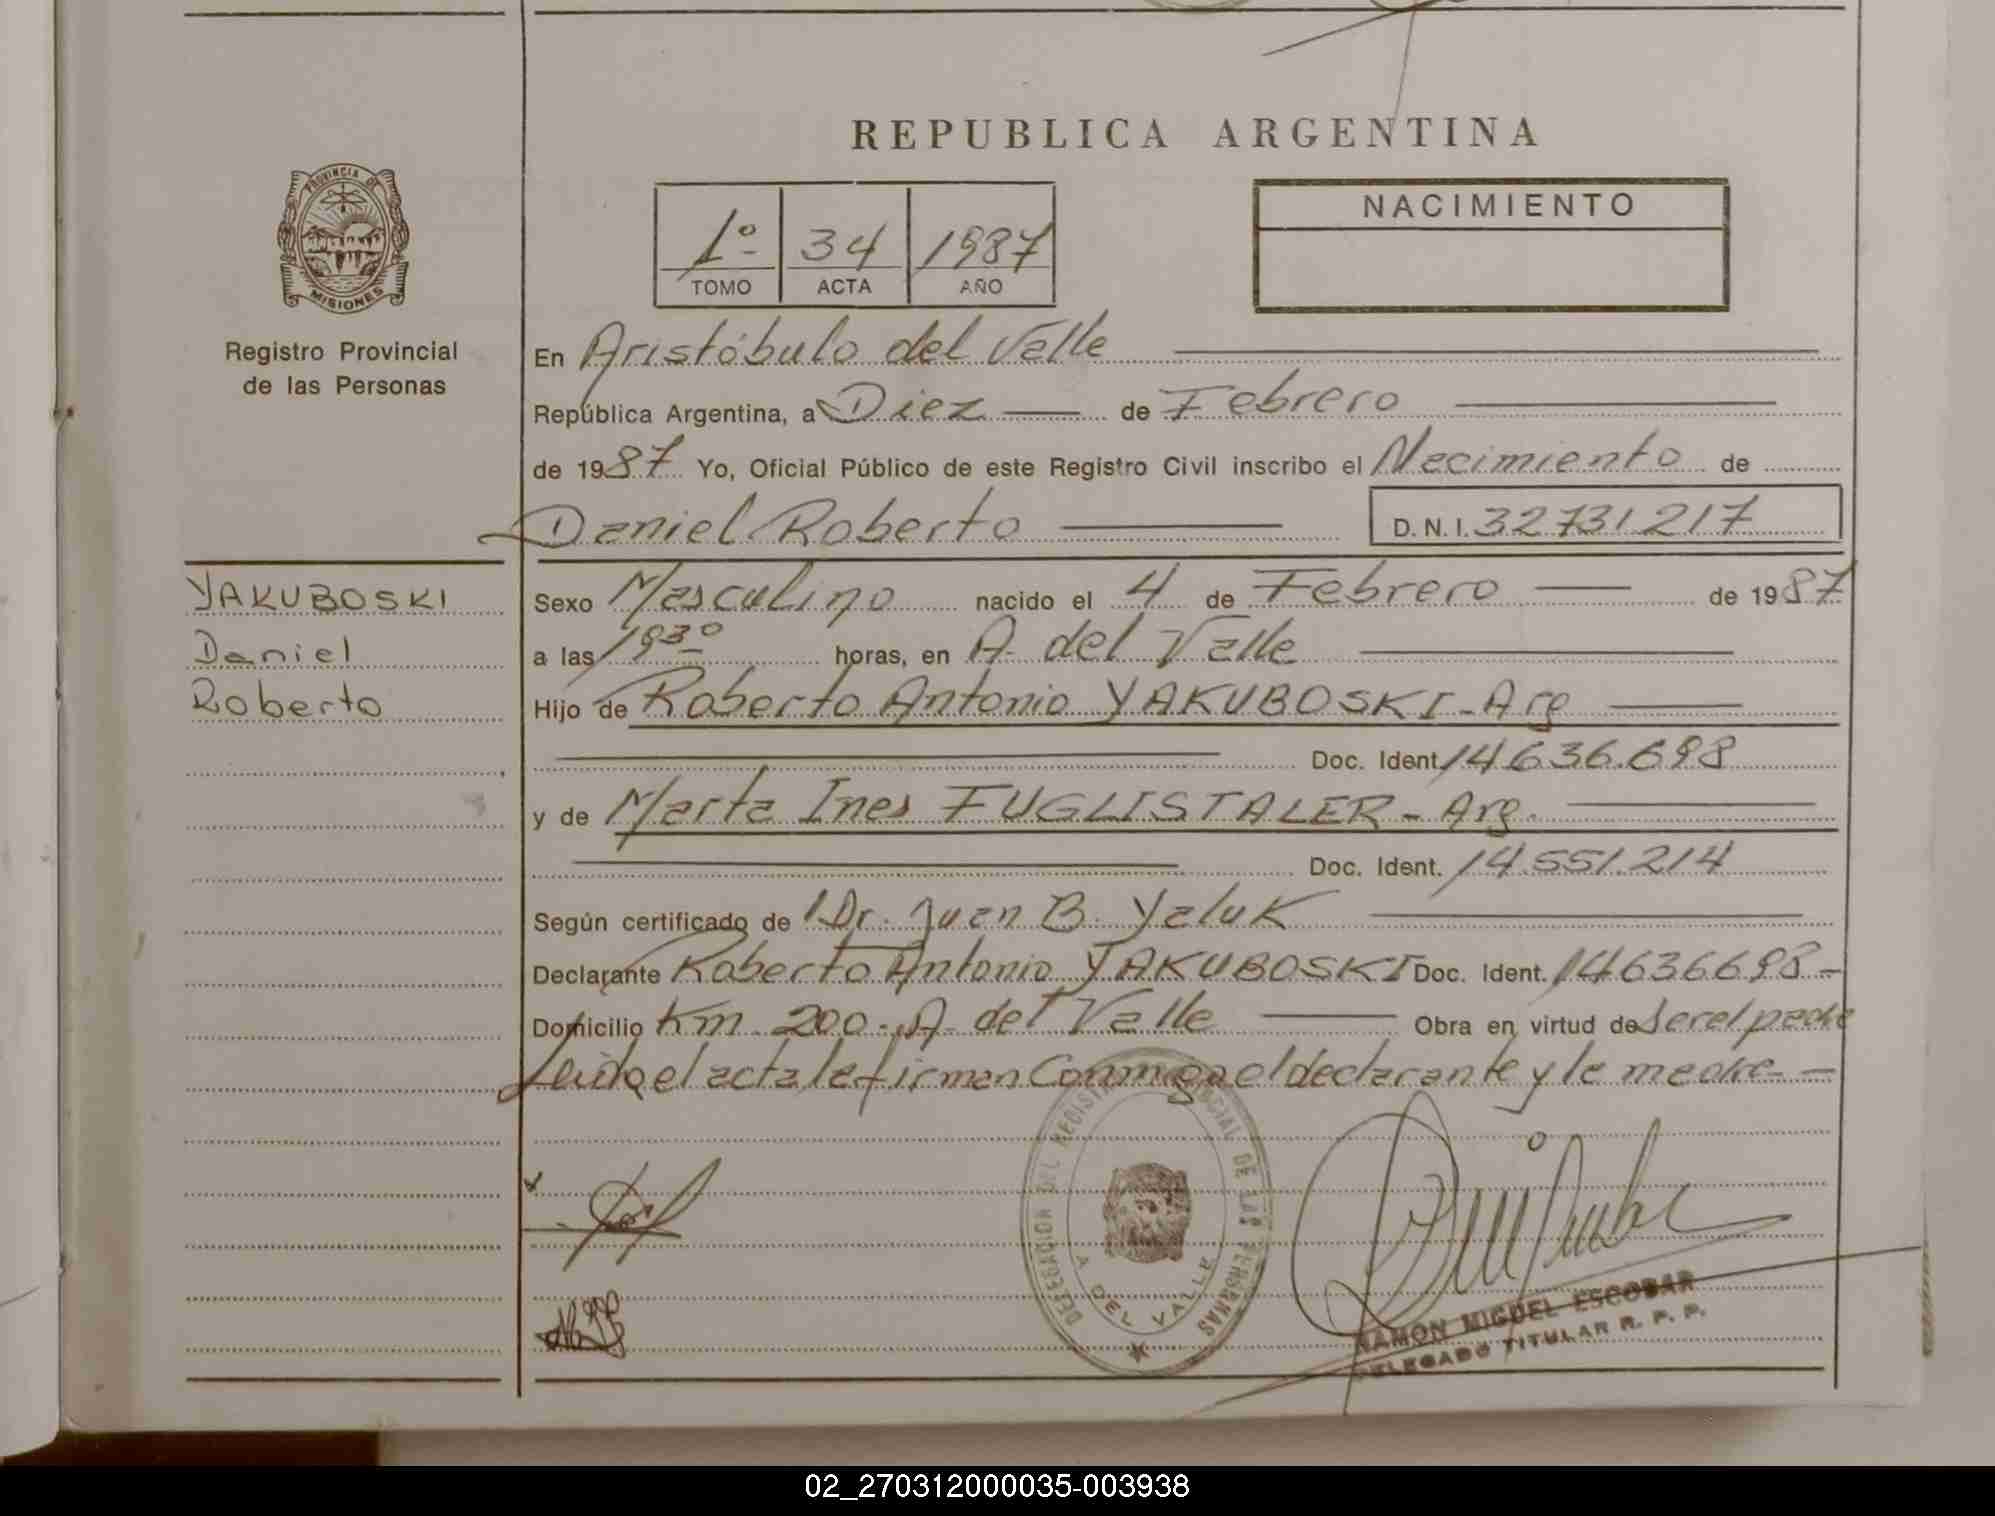 REPUBLICA ARGENTINA
PROVINCIA DE
MISIONES
Registro Provincial
de las Personas
1º TOMO
34 ACTA
1987 AÑO
NACIMIENTO
En Aristóbulo del Valle
República Argentina, a Diez de Febrero
de 1987 Yo, Oficial Público de este Registro Civil inscribo el Nacimiento de
Daniel Roberto D.N.I. 32731217
YAKUBOSKI
Daniel
Roberto
Sexo Masculino nacido el 4 de Febrero de 1987
a las 1930 horas, en A. del Valle
Hijo de Roberto Antonio YAKUBOSKI - Arg
Doc. Ident. 14.636.698
y de Marta Ines FUGLISTALER - Arg.
Doc. Ident. 14.551.214
Según certificado de Dr. Juan B. Yaluk
Declarante Roberto Antonio YAKUBOSKI Doc. Ident. 14636698 -
Domicilio Km. 200 - A. del Valle Obra en virtud de ser el padre
Leida el acta la firman Conmigo el declarante y la madre - -
DELEGACION DEL REGISTRO PROVINCIAL DE LAS PERSONAS
A DEL VALLE
RAMON MIGUEL ESCOBAR
DELEGADO TITULAR R. P. P.
02_270312000035-003938